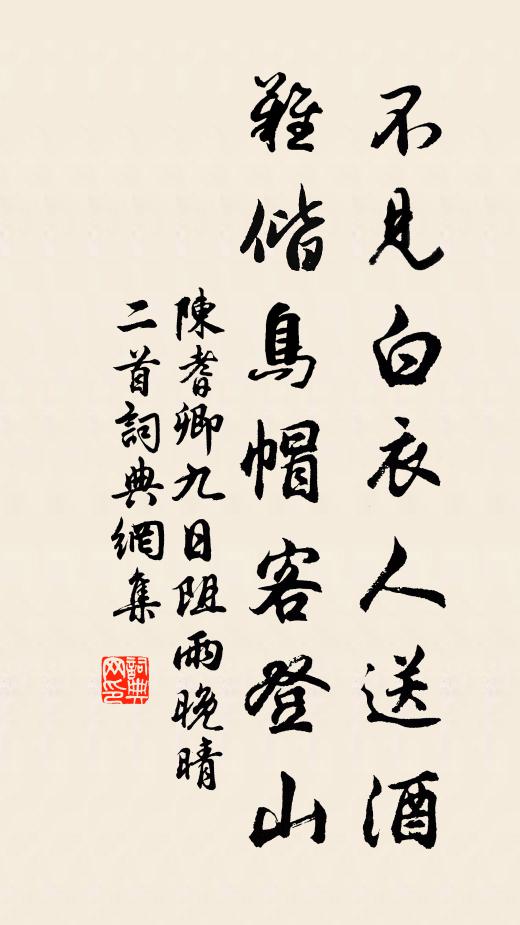 不見白衣人送酒
難偕烏帽客登山
陳耆卿九日阻雨晚晴
二首詞典網集
詞典網印